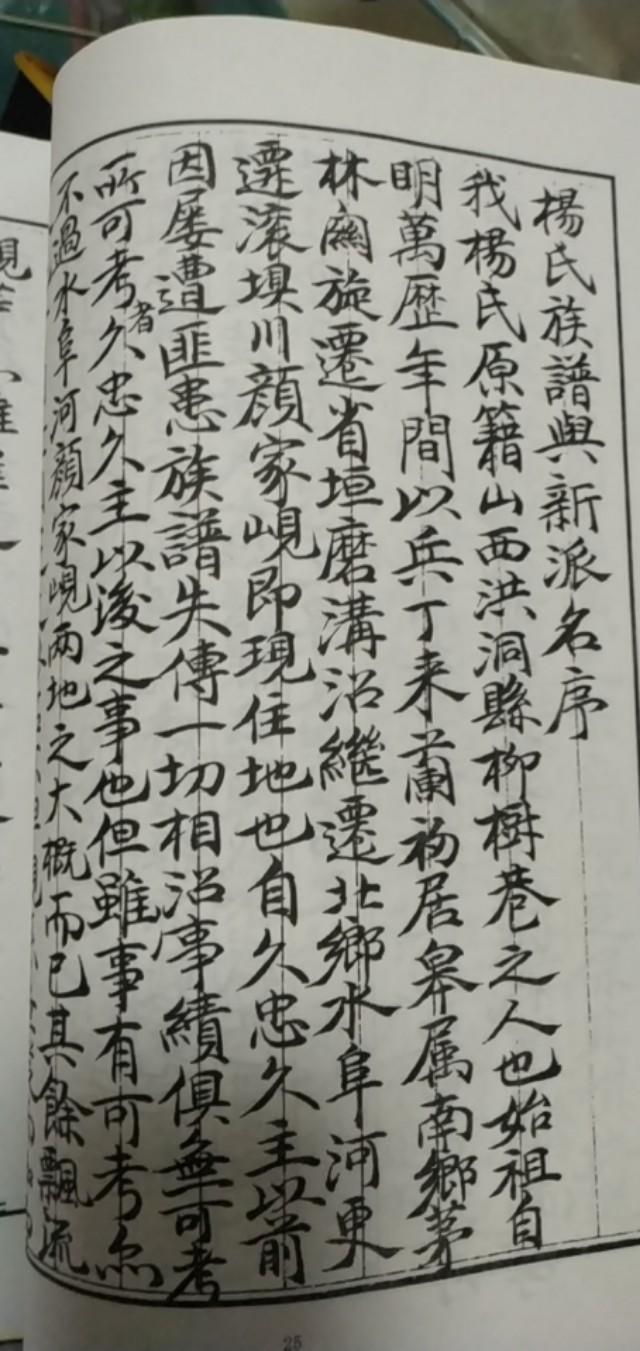 楊氏族譜與新派名序
我楊氏原籍山西洪洞縣柳樹巷之人也始祖自
明萬歷年間以兵丁来蘭初居皋属南鄉茅
林窩旋遷省垣磨溝沿繼遷北鄉水阜河更
遷滚埧川顔家峴即現住地也自久忠久主以前
因屡遭匪患族譜失傳一切相沿事績俱無可考
所可考者久忠久主以後之事也但雖事有可考亦
不過水阜河顔家峴兩地之大概而已其餘飄流
25